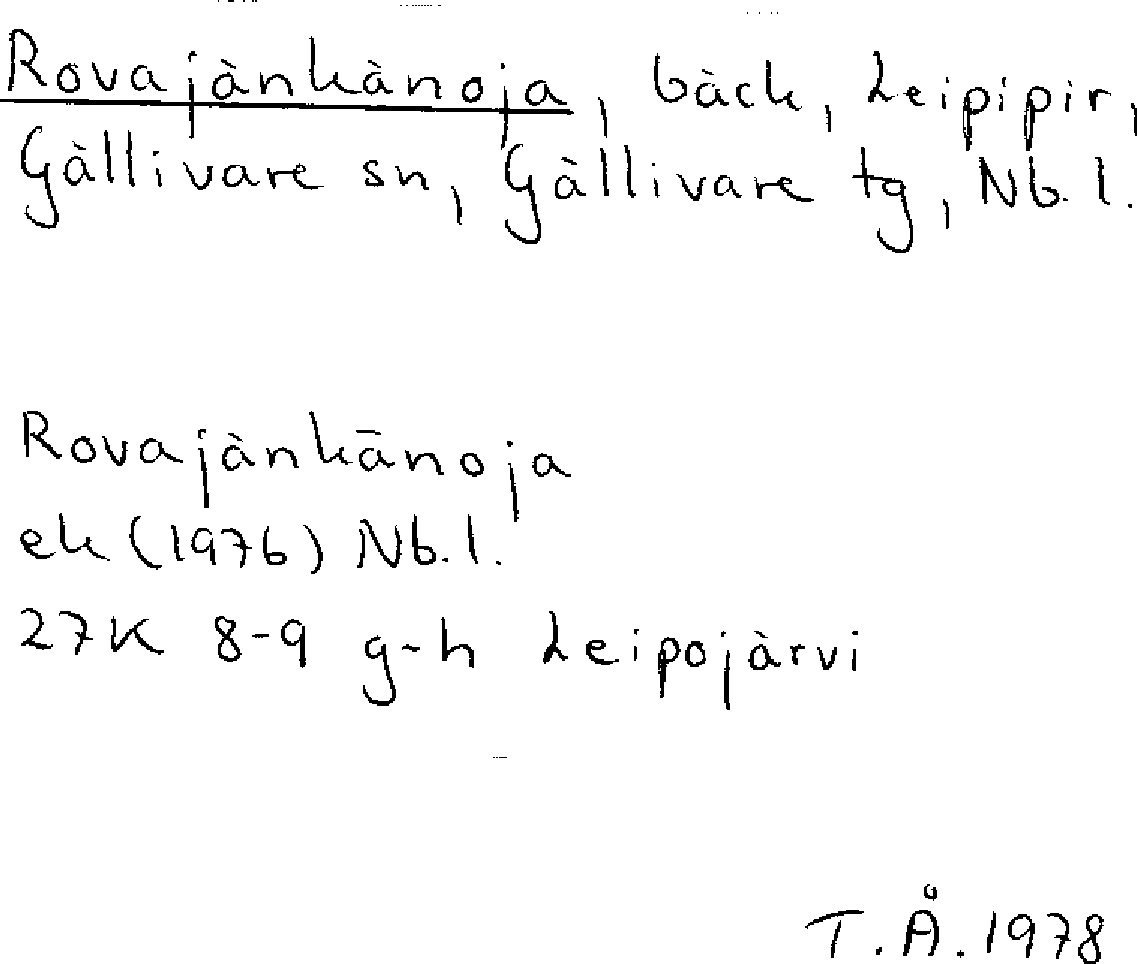 Rovajänkänoja, bäck, Leipipir,
Gällivare sn, Gällivare tg, Nb. l.
Rovajänkänoja
ek (1976) Nb. l.
27K 8-9 g-h Leipojärvi
T.Å. 1978